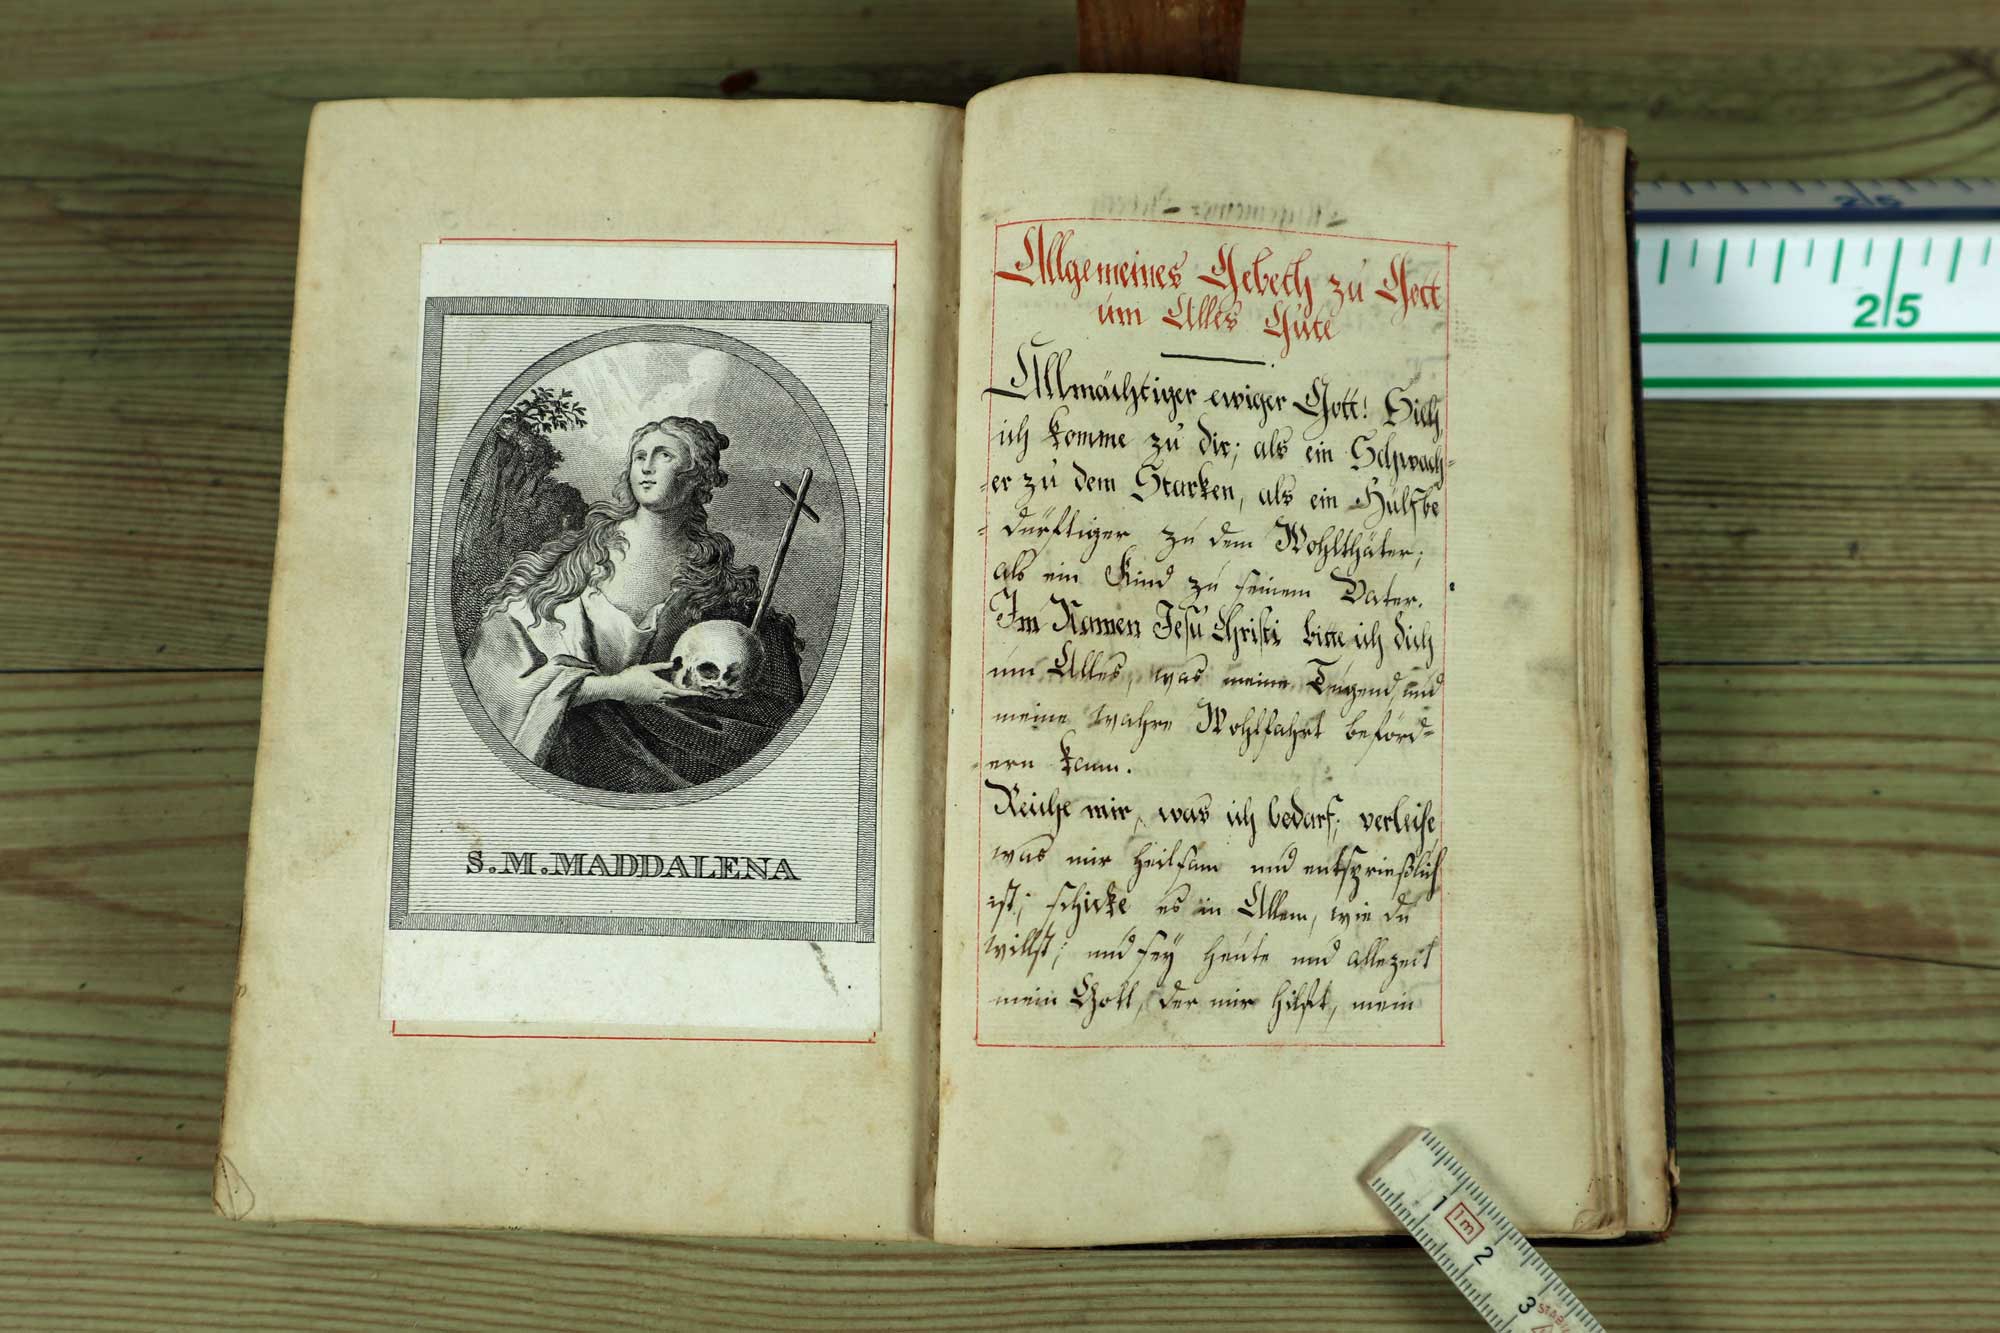 S.M.MADDALENA
Allgemeines Gebeth zu Gott
um Alles Gute
Allmächtiger ewiger Gott! Sieh,
ich komme zu dir; als ein Schwach=
=er zu dem Starken, als ein Hülfbe
=dürftiger zu dem Wohlthäter;
als ein Kind zu seinem Vater.
Im Namen Jesu Christi bitte ich dich
um Alles, was meine Tugend und
meine wahre Wohlfahrt beförd=
ern kann.
Reiche mir, was ich bedarf; verleihe,
was mir heilsam und entsprießlich
ist; schicke es in Allem, wie du
willst; und sey heute und allezeit
mein Gott, der mir hilft, mein
25
25
1
1m
2
3